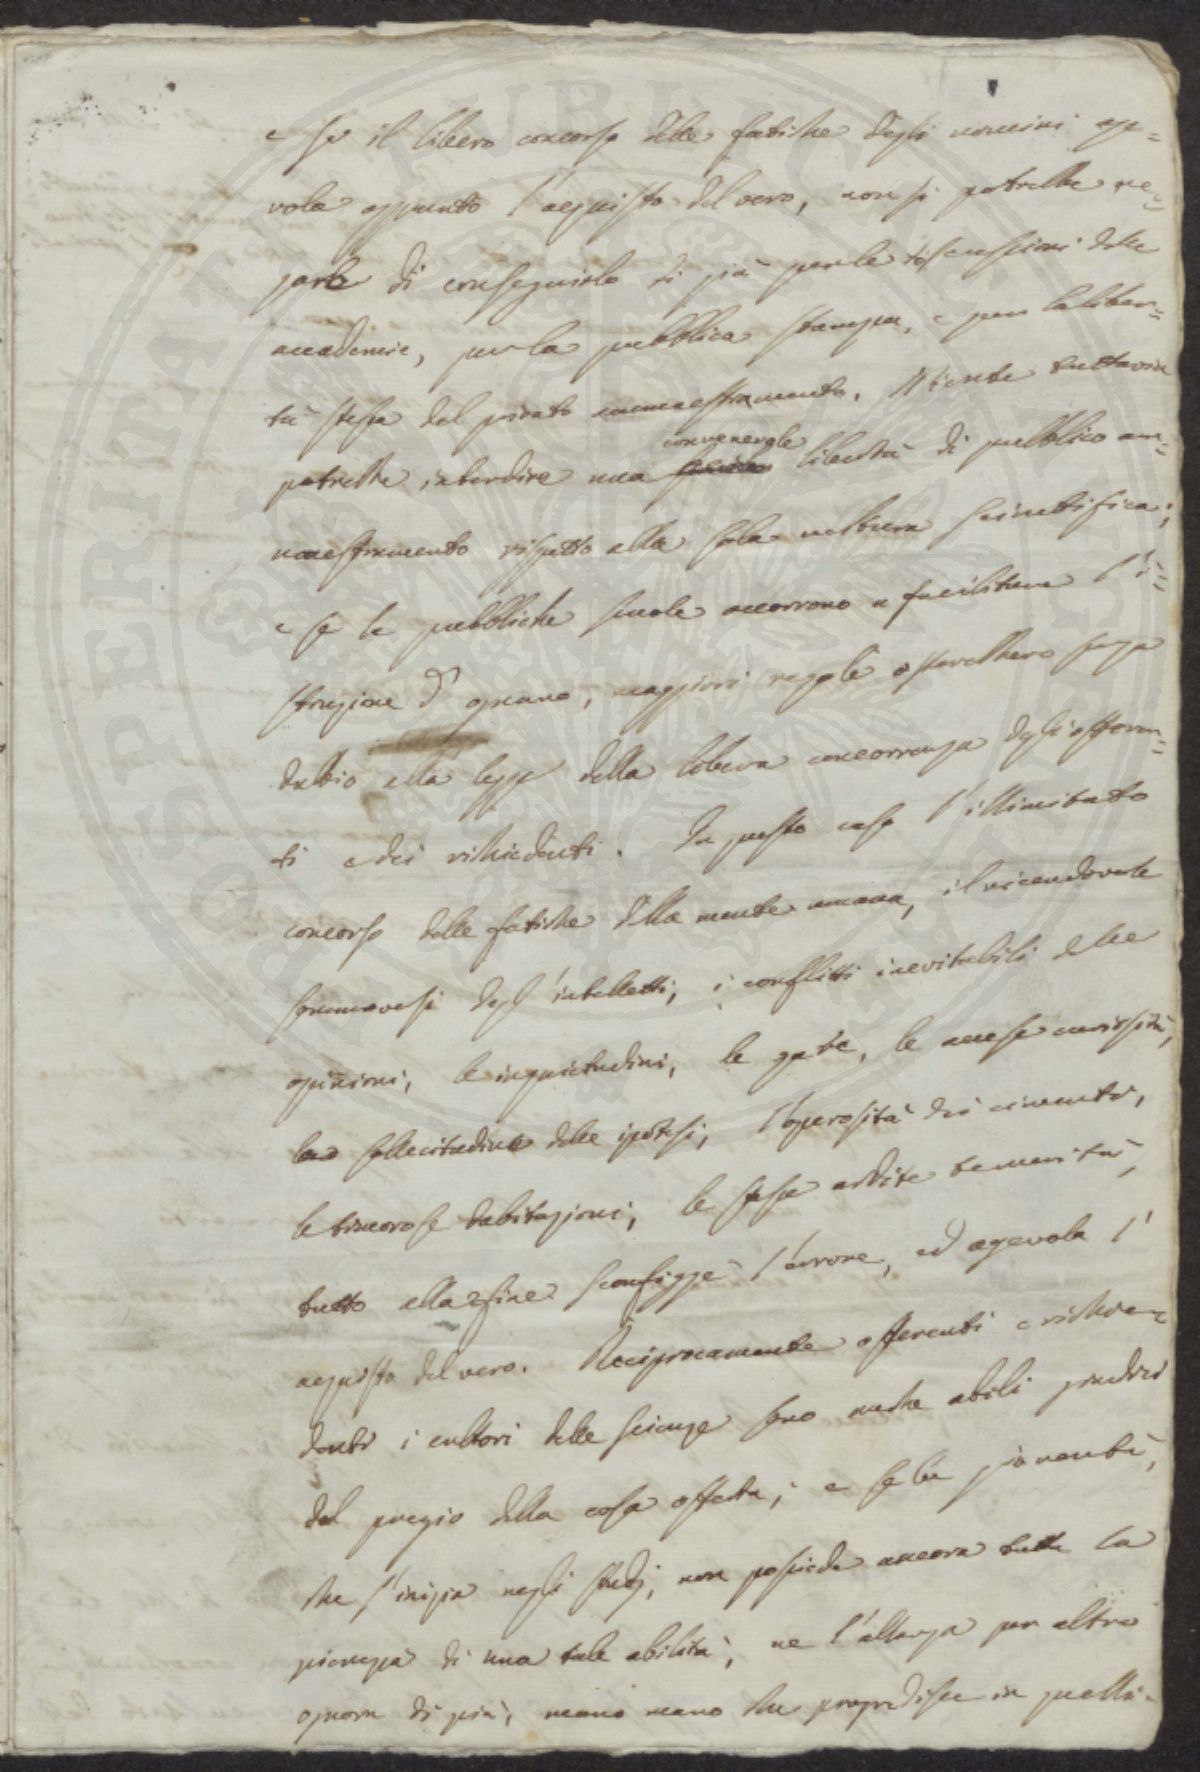 e se il libero concorso delle fatiche degli uomini age=
vola appunto l'acquisto del vero, non si potrebbe ne=
gare di conseguirlo di più per le discussioni delle
accademie, per la pubblica stampa, e per la liber=
tà stessa del privato ammaestramento. Niente tuttavia
potrebbe interdire una convenevole libertà di pubblico am=
maestramento rispetto alla sola natura scientifica;
e se le pubbliche scuole accorrono a facilitare l'i=
struzione d'ognuno, maggiori regole osserverebbero senza
dubbio alla legge della libera concorrenza degli offeren=
ti e dei richiedenti. In questo caso l'illimitato
concorso delle fatiche della mente umana, il vicendevole
commoversi degl'intelletti, i conflitti inevitabili delle
opinioni, le inquietudini, le gare, le accese curiosità,
la sollecitudine delle ipotesi, l'operosità dei cimenti,
le timorose dubitazioni, le stesse ardite temerità,
tutto alla fine sconfigge l'errore, ed agevola l'
acquisto del vero. Reciprocamente offerenti e richie=
denti i cultori delle scienze sono anche abili giudici
del pregio della cosa offerta; e se la gioventù,
che s'inizia negli studj, non possiede ancora tutta la
pienezza di una tale abilità, ne l'altezza per altro
ognora di più, mano mano che progredisce in quelli.